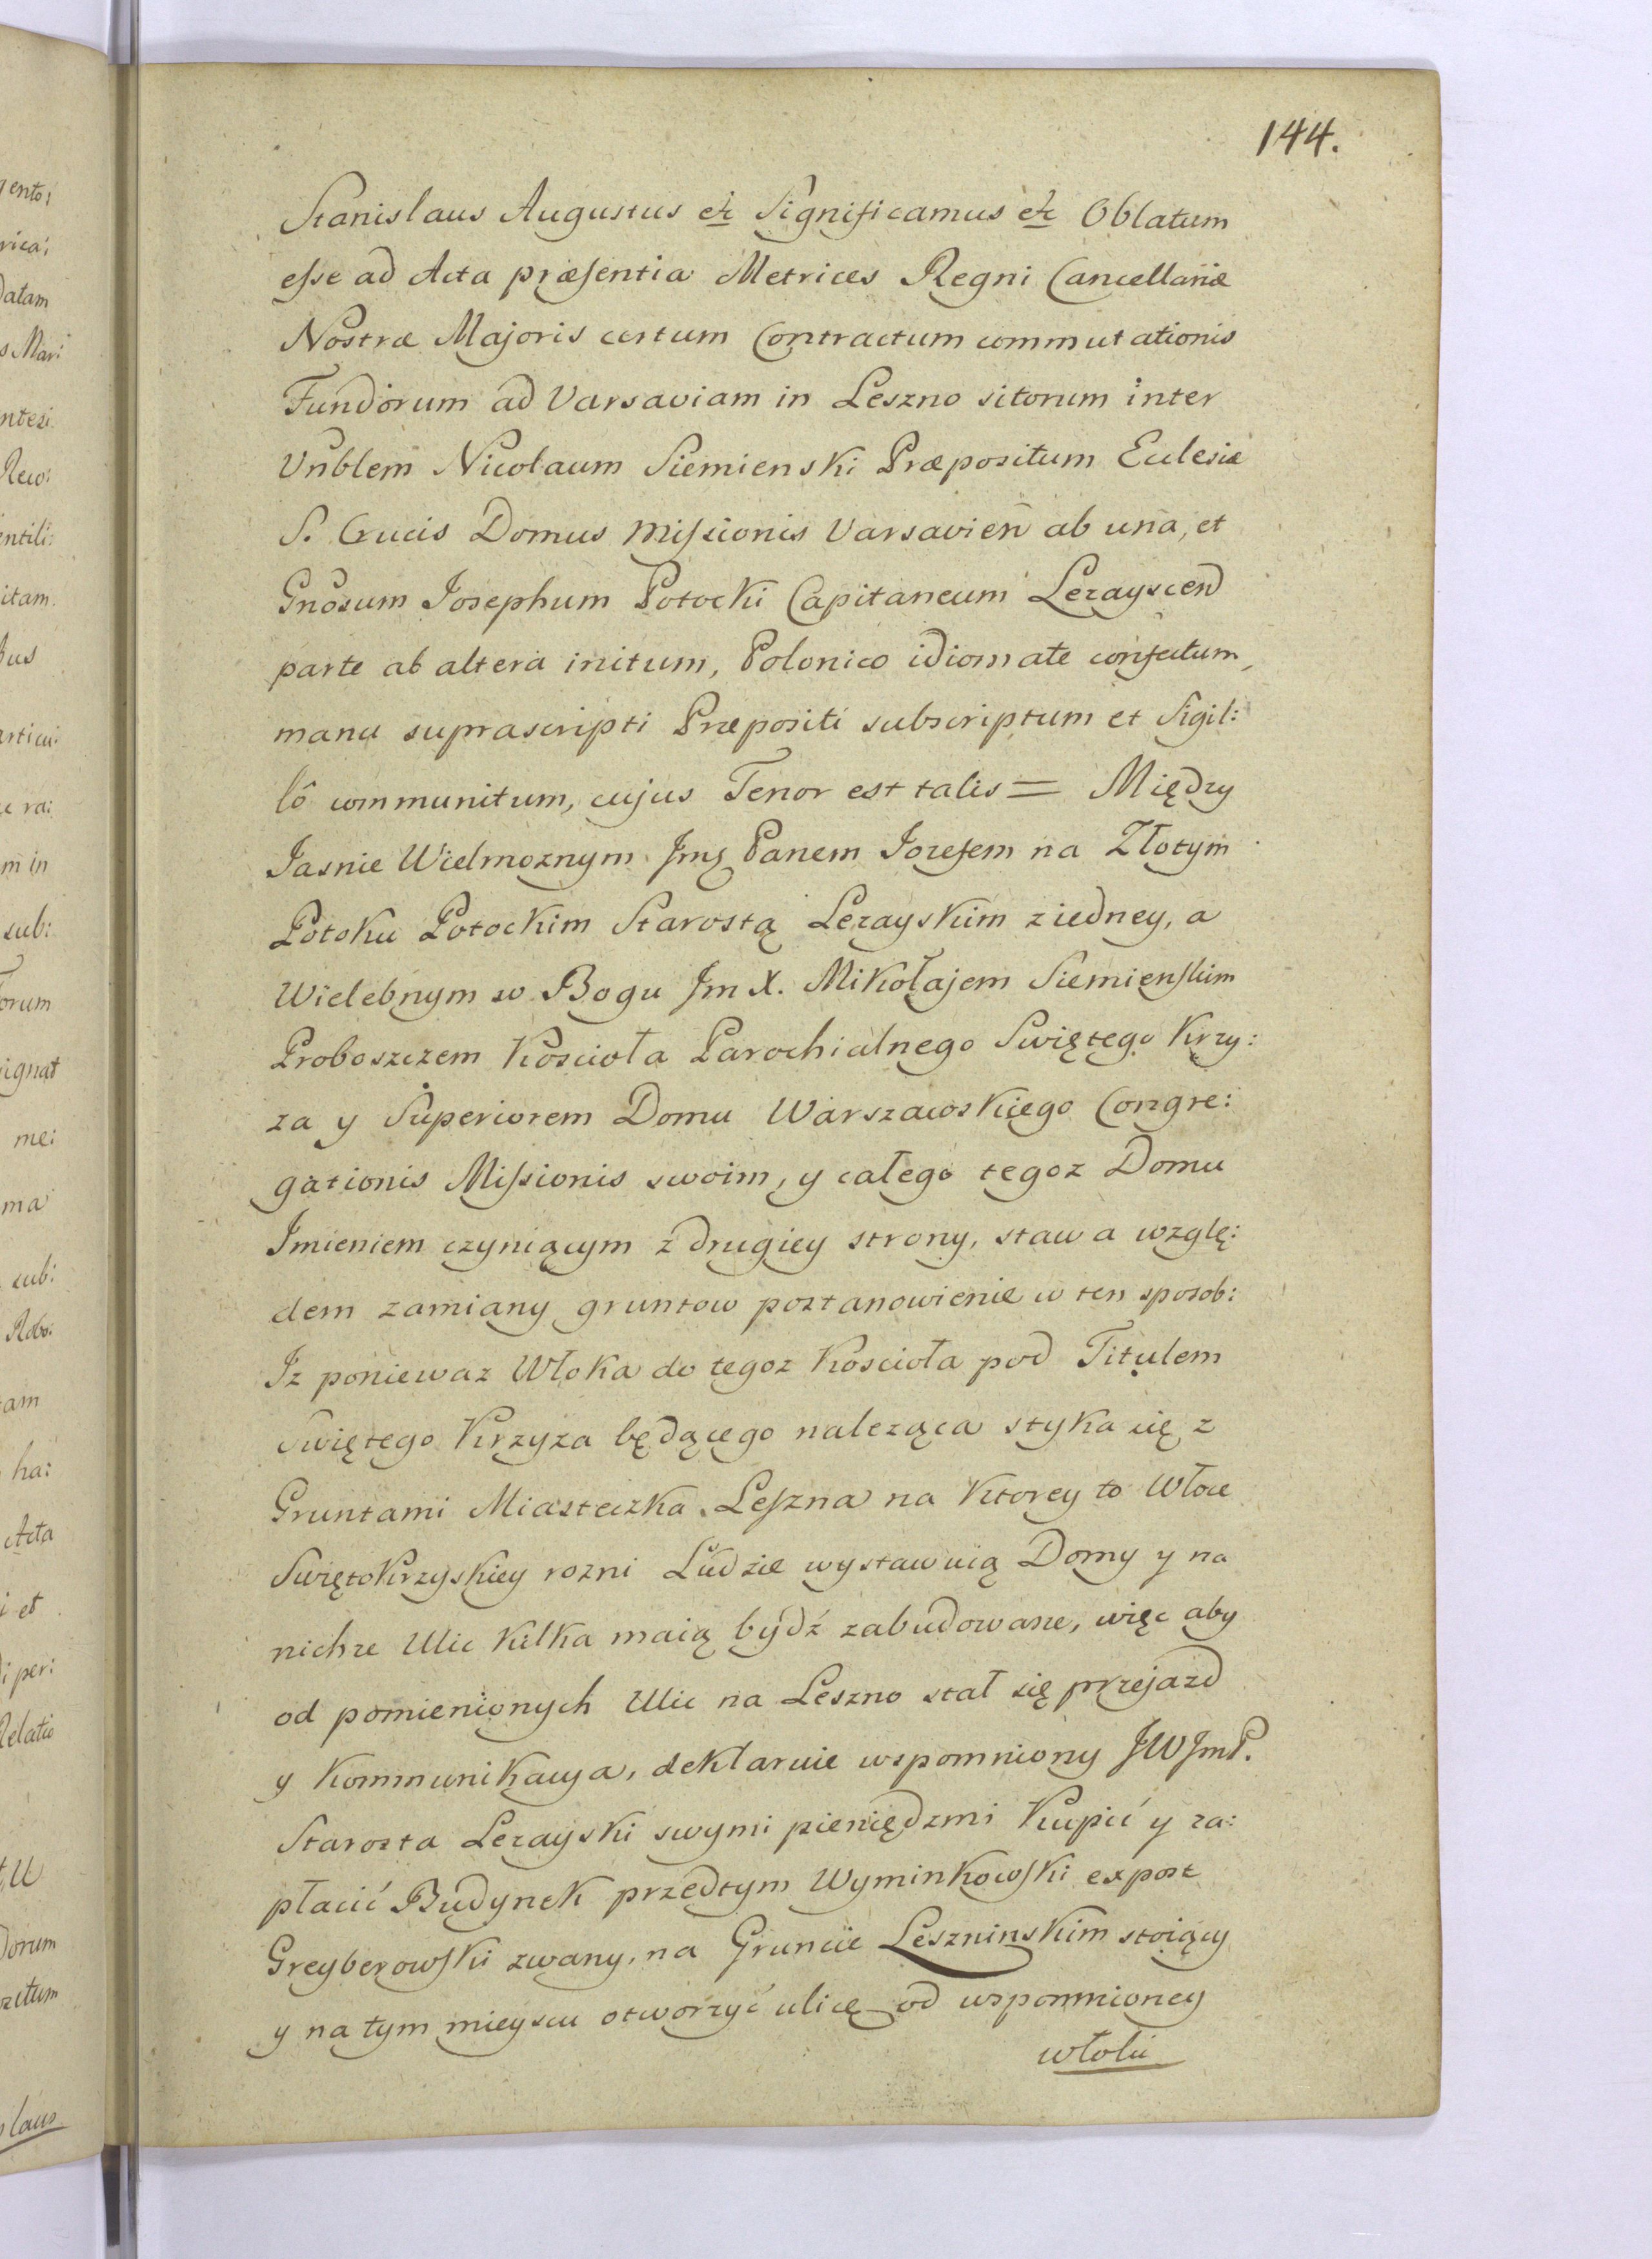 144.
Stanislaus Augustus etc Significamus etc Oblatum
esse ad Acta præsentia Metrices Regni Cancellariæ
Nostræ Majoris certum Contractum commutationis
Fundorum ad Varsaviam in Leszno sitorum inter
Vnblem Nicolaum Siemienski Præpositum Eclesiæ
S. Crucis Domus Missionis Varsavien ab una, et
Gnosum Josephum Potocki Capitaneum Lezayscen
parte ab altera initum, Polonico idiomate confectum,
manu suprascripti Præpositi subscriptum et Sigil:
lô communitum, cujus Tenor est talis = Między
Jasnie Wielmoznym Jmę Panem Jozefem na Złotym
Potoku Potockim Starostą Lezayskim z iedney, a
Wielebnym w Bogu Jm X. Mikołajem Siemienskim
Proboszczem Koscioła Parochialnego Swiętego Krzy:
za y Superiorem Domu Warszawskiego Congre:
gationis Missionis swoim, y całego tegoz Domu
Imieniem czyniącym z drugiey strony, stawa wzglę:
dem zamiany gruntow postanowienie w ten sposob:
Iz poniewaz Włoka do tegoz Koscioła pod Titulem
Swiętego Krzyza będącego naleząca styka się z
Gruntami Miasteczka Leszna na Ktorey to Włoce
SwiętoKrzyskiey rozni Ludzie wystawuią Domy y na
nichze Ulic Kilka maią bydź zabudowane, więc aby
od pomienionych Ulic na Leszno stał się przejazd
y Kommunikacya, deklaruie wspomniony JWJmP.
Starosta Lezayski swymi pieniędzmi Kupić y za:
płacić Budynek przedtym Wyminkowski expost
Greyberowski zwany, na Gruncie Lesznińskim stoiący
y na tym mieyscu otworzyć ulicę od wspomnioney
włoki